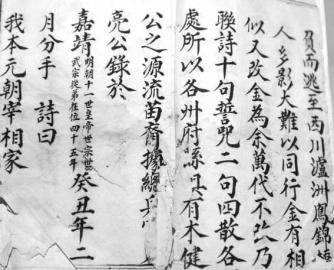 負而逃至西川瀘洲鳳錦
人多影大難以同行金有相
似又改金為余萬代不改乃
聯詩十句誓咒二句四散各
處所以各州府縣具有木健
公之源流苗裔據總兵
亮公錄於
嘉靖明朝十一世皇帝世宗世武宗從弟在位四十五年癸丑年二
月分手 詩曰
我本元朝宰相家